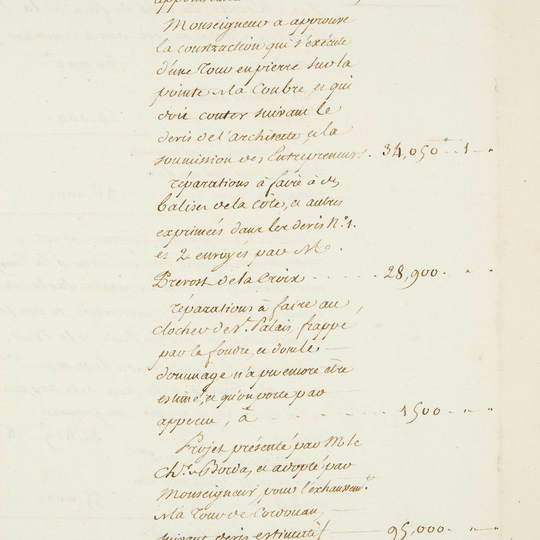 Monseigneur a approuvé
la construction qui s'exécute
d'une Tour en pierre sur la
pointe de la Coubre, et qui
doit couter suivant le
devis de l'architecte, et la
soumission des Entrepreneurs. 34,050 ++ 1 "
réparations à faire à des
balises de la côte, et autres
exprimées dans les devis N.° 1.
et 2 envoyés par M.
Prevost de la Croix ..... 28,900. " "
réparations à faire au
clocher de S.t Palais frappé
par la foudre, et dont le
dommage n'a pu encore être
estimé, et qu'on porte par
apperçu, à ..... 1500 .. " .. "
Projet présenté par M. le
Ch.er de Borda, et adopté par
Monseigneur pour l'exhaussem.t
de la Tour de Cordouan,
suivant devis estimatif — 95,000. " "